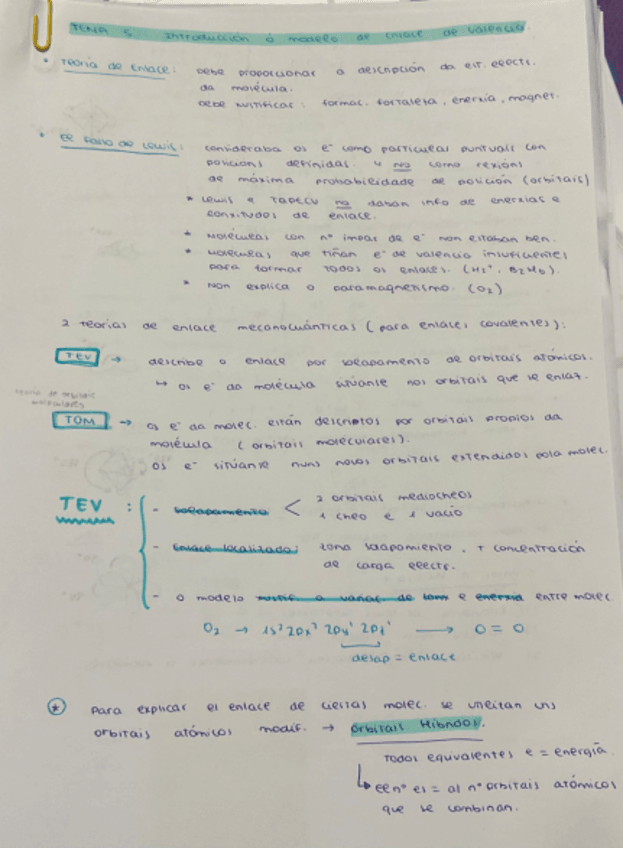 TEMA 5 Introducción ó modelo de enlace de valencia.
• Teoría de Enlace: debe proporcionar a descripción da est. electr.
da molécula.
debe xustificar: formac. fortaleza, enerxía, magnet.
• de Lewis: consideraba os e⁻ como partículas puntuais con
posicións definidas y no como rexións
de máxima probabilidade de posición (orbitais)
* Lewis e TRPECV no daban info de enerxias e
lonxitudes de enlace.
* Moléculas con nº impar de e⁻ non estaban ben.
* Moléculas que tiñan e⁻ de valencia insuficientes
para formar TODOS os enlaces. (H₂⁺, B₂H₆).
* Non explica o paramagnetismo. (O₂)
2 teorías de enlace mecanocuánticas (para enlaces covalentes):
TEV → describe o enlace por solapamento de orbitais atómicos.
↳ os e⁻ da molécula sitúanse nos orbitais que se enlaz.
teoría de orbitais
moleculares
TOM → os e⁻ da molec. están descritos por orbitais propios da
molécula (orbitais moleculares).
os e⁻ sitúanse nuns novos orbitais extendidos pola molec.
TEV : - solapamento < 2 orbitais mediocheos
1 cheo e 1 vacío
- Enlace localizado: zona solapamiento, + concentración
de carga electr.
- o modelo xustif. a variac. de e enerxía entre molec
O₂ → 1s² 2px² 2py¹ 2pz¹ → O = O
desap = enlace
* Para explicar el enlace de ciertas molec. se uns
orbitais atómicos modif. → Orbitais Híbridos.
Todos equivalentes e = energía.
↳ el nº es = al nº orbitais atómicos
que se combinan.